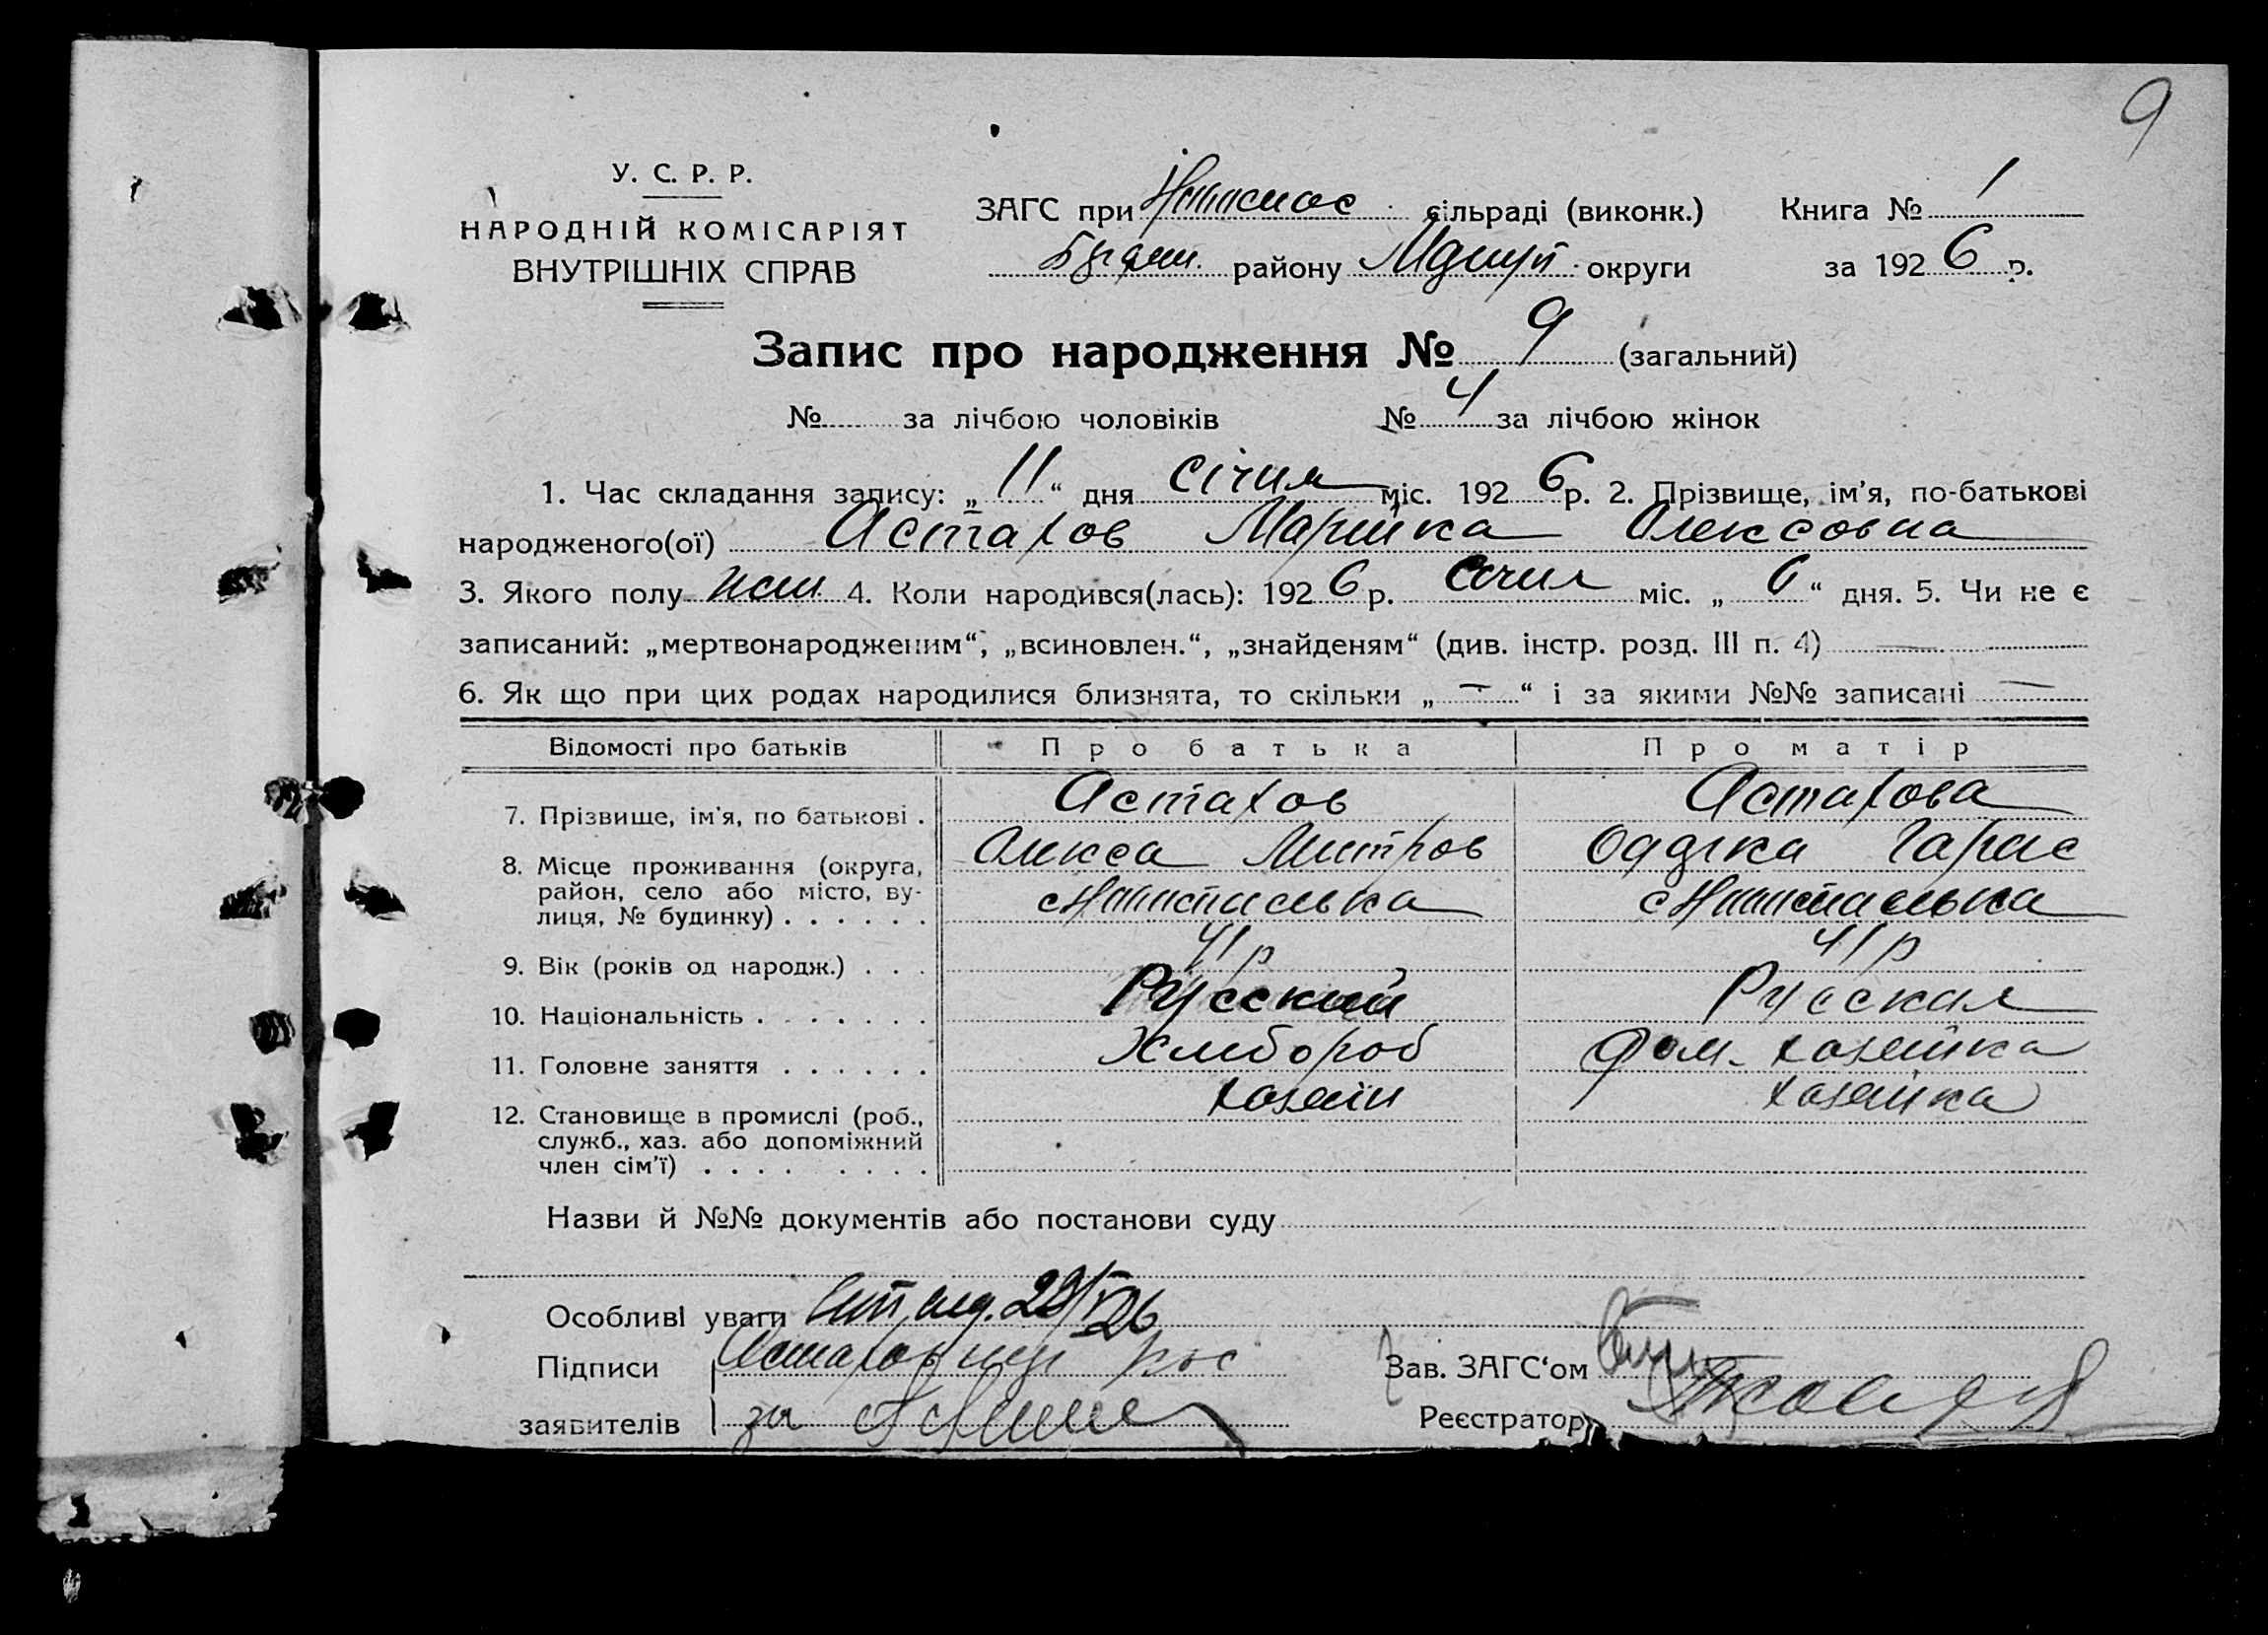 9
У. С. Р. Р.
НАРОДНІЙ КОМІСАРІЯТ
ВНУТРІШНІХ СПРАВ
ЗАГС при сільраді (виконк.) Книга № 1
району округи за 1926 р.
Запис про народження № 9 (загальний)
№ за лічбою чоловіків № 4 за лічбою жінок
1. Час складання запису: „ 11 “ дня січня міс. 1926 р. 2. Прізвище, ім’я, по-батькові
народженого(ої) Астахов Марійка Олексовна
3. Якого полу жін 4. Коли народився(лась): 1926 р. січня міс. „ 6 “ дня. 5. Чи не є
записаний: „мертвонародженим“, „всиновлен.“, „знайденям“ (див. інстр. розд. III п. 4) —
6. Як що при цих родах народилися близнята, то скільки „ — “ і за якими №№ записані —
Відомості про батьків Про батька Про матір
7. Прізвище, ім’я, по батькові . Астахов Астахова
Олекса Митров Оддека Тарас
8. Місце проживання (округа,
район, село або місто, ву-
лиця, № будинку) . . . . . .
9. Вік (років од народж.) . . . 41 р 41 р
10. Національність . . . . . . . Русский Русская
11. Головне заняття . . . . . . Хлібороб Дом. хазяйка
12. Становище в промислі (роб.,
служб., хаз. або допоміжний
член сім’ї) . . . . . . . . хазяїн хазяйка
Назви й №№ документів або постанови суду
Особливі уваги
Підписи Астахов
заявителів за
Зав. ЗАГС‘ом
Реєстратор